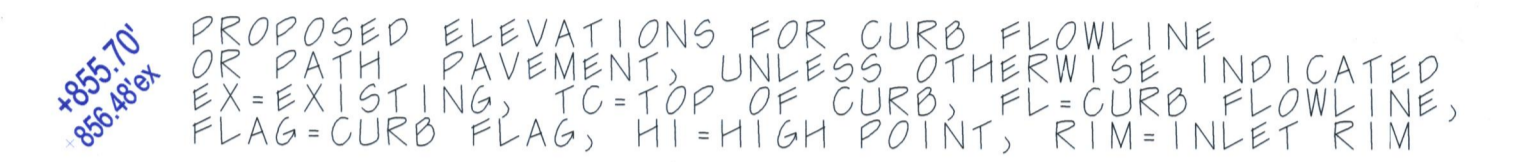 +855.70'
×856.48'ex
PROPOSED ELEVATIONS FOR CURB FLOWLINE
OR PATH PAVEMENT, UNLESS OTHERWISE INDICATED
EX=EXISTING, TC=TOP OF CURB, FL=CURB FLOWLINE,
FLAG=CURB FLAG, HI=HIGH POINT, RIM=INLET RIM